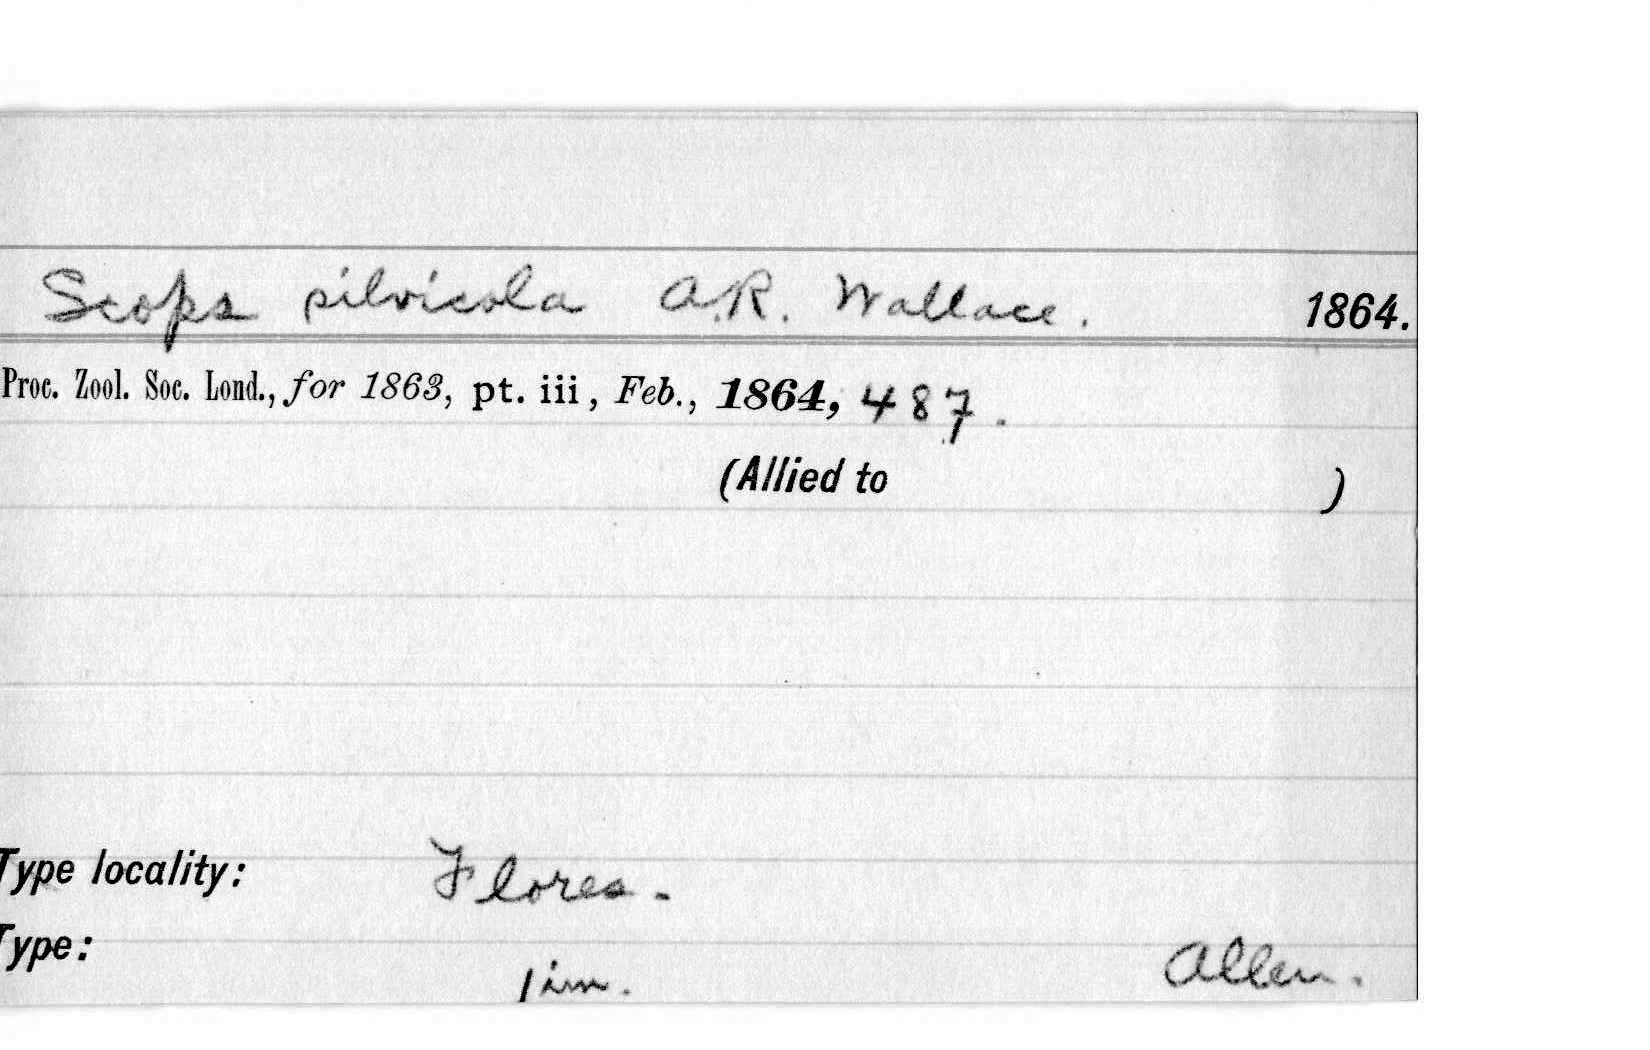 Scops silvicola A.R. Wallace. 1864.
Proc. Zool. Soc. Lond., for 1863, pt. iii, Feb., 1864, 487.
(Allied to )
Type locality: Flores.
Type: 1 im. Allen.